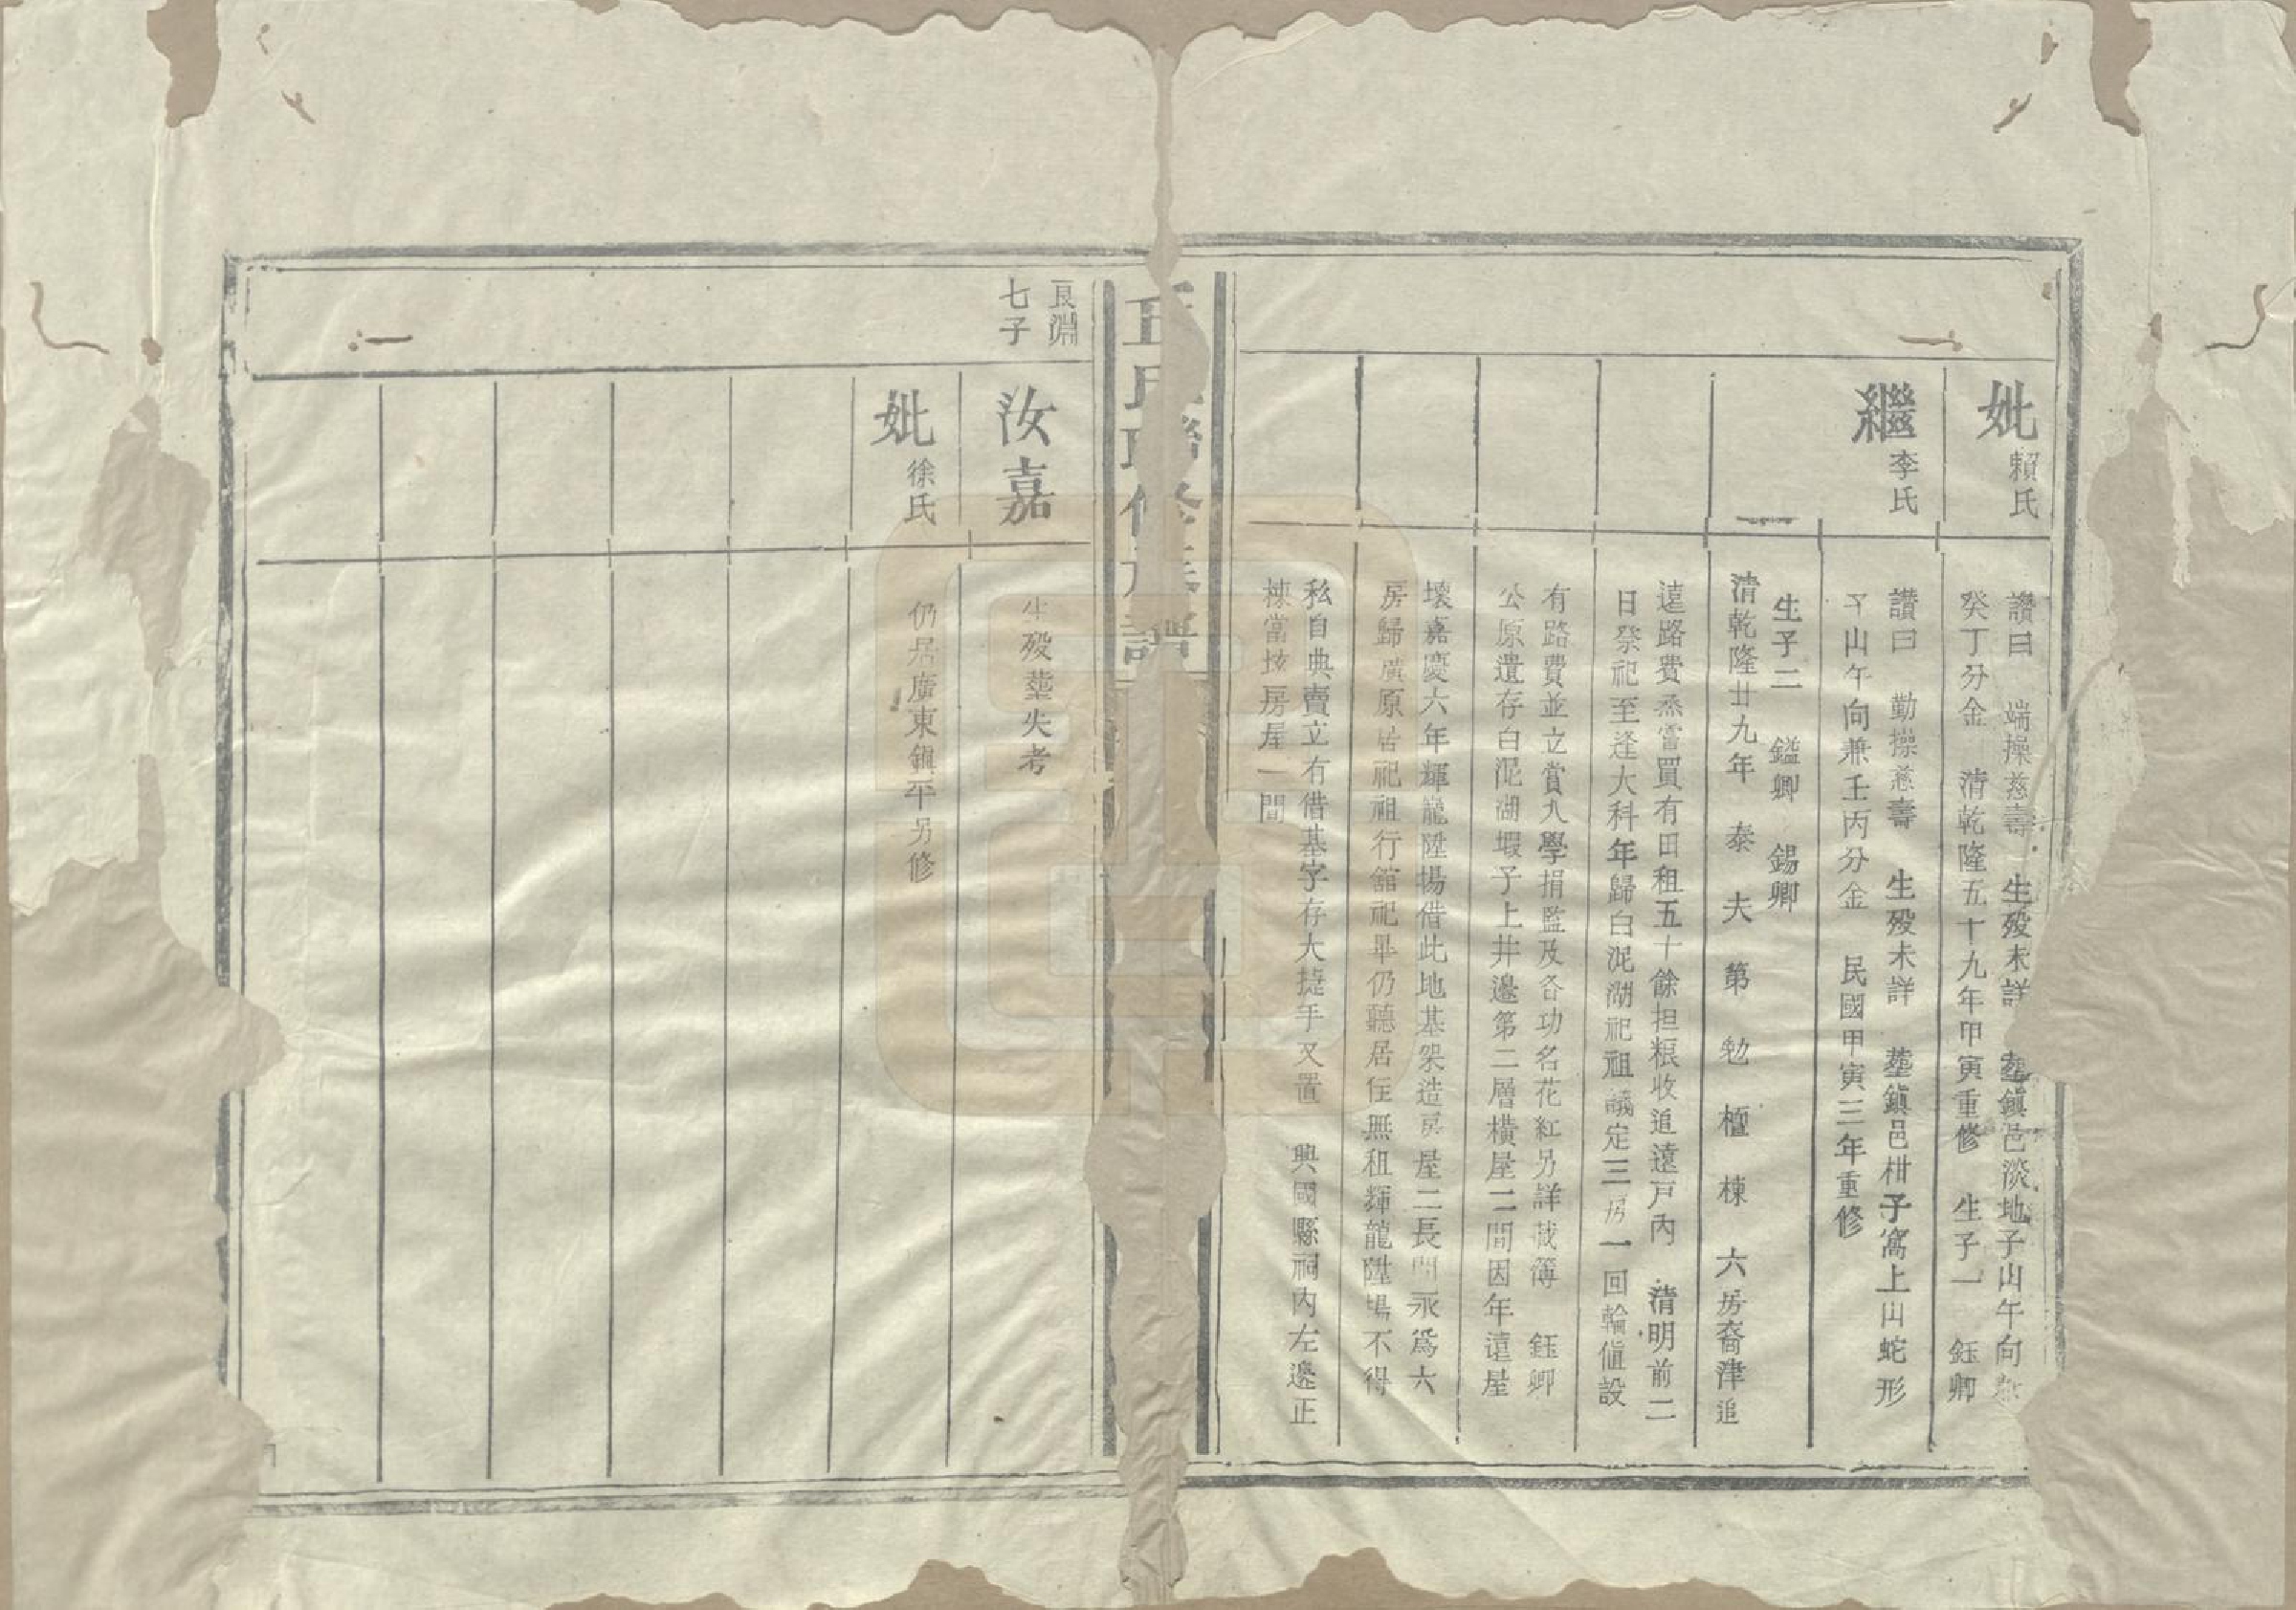 妣賴氏
讚曰 端操慈壽 生殁未詳 塟鎮邑淡地子山午向
癸丁分金 清乾隆五十九年甲寅重修 生子一 鈺卿
繼李氏
讚曰 勤操慈壽 生殁未詳 塟鎮邑柑子窩上山蛇形
子山午向兼壬丙分金 民國甲寅三年重修
生子二 鎰卿 錫卿
清乾隆廿九年 泰 夫 第 勉 櫃 棟 六房裔津追
遠路費烝嘗買有田租五十餘担粮收追遠戸內 清明前二
日祭祀至逢大科年歸白泥湖祀祖議定三房一回輪値設
有路費並立賞入學捐監及各功名花紅另詳載簿 鈺卿
公原遺存白泥湖塅子上井邊第二層横屋二間因年遠屋
壞嘉慶六年輝龍陞揚借此地基架造房屋二長間永爲六
房歸廣原居祀祖行舘祀畢仍聽居住無租輝龍陞塲不得
私自典賣立有借基字存大捷手又置 興國縣祠內左邊正
棟當垓房屋一間
丘氏聯修族譜
良淵
七子
汝嘉
生殁塟失考
妣徐氏
仍居廣東鎮平另修